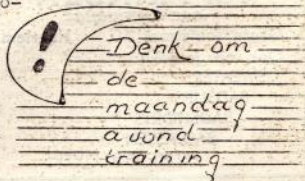 !
Denk om
de
maandag
avond
training